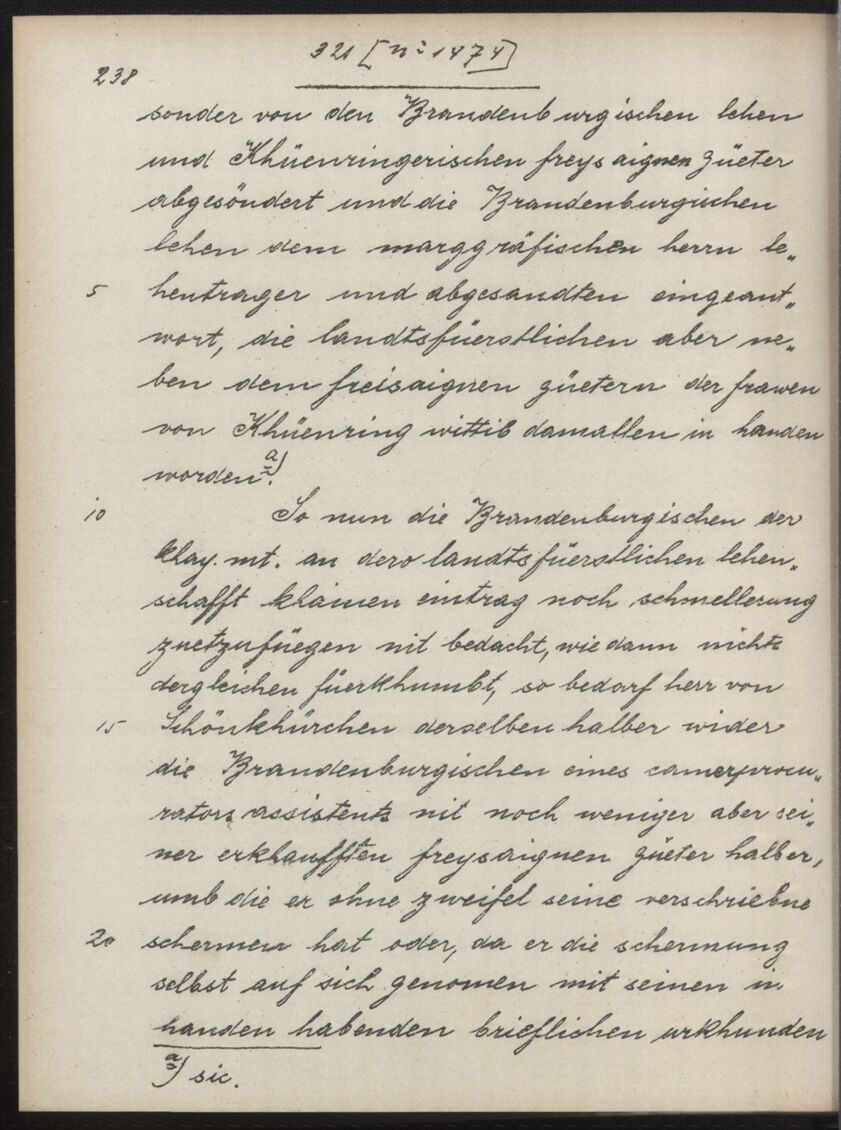 321 [nº 1474]
238
sonder von den Brandenburgischen lehen
und Khüenringerischen freysaignen züeter
abgesöndert und die Brandenburgischen
lehen dem marggräfischen herrn le„
5 hentrager und abgesandten eingeant„
wort, die landtsfüerstlichen aber ne„
ben dem freisaignen güetern der frawen
von Khüenring wittib damallen in handen
worden a).
10 So nun die Brandenburgischen der
khay. mt. an dero landtsfüerstlichen lehen„
schafft khainen eintrag noch schmellerung
zuetzufüegen nit bedacht, wie dann nichts
dergleichen füerkhumbt, so bedarf herr von
15 Schönkhürchen derselben halber wider
die Brandenburgischen eines camerprocu„
rators assistents nit noch weniger aber sei„
ner erkhaufften freysaignen güeter halber,
umb die er ohne zweifel seine verschriebne
20 schermen hat oder, da er die schermung
selbst auf sich genomen mit seinen in
handen habenden brieflichen urkhunden
a) sic.